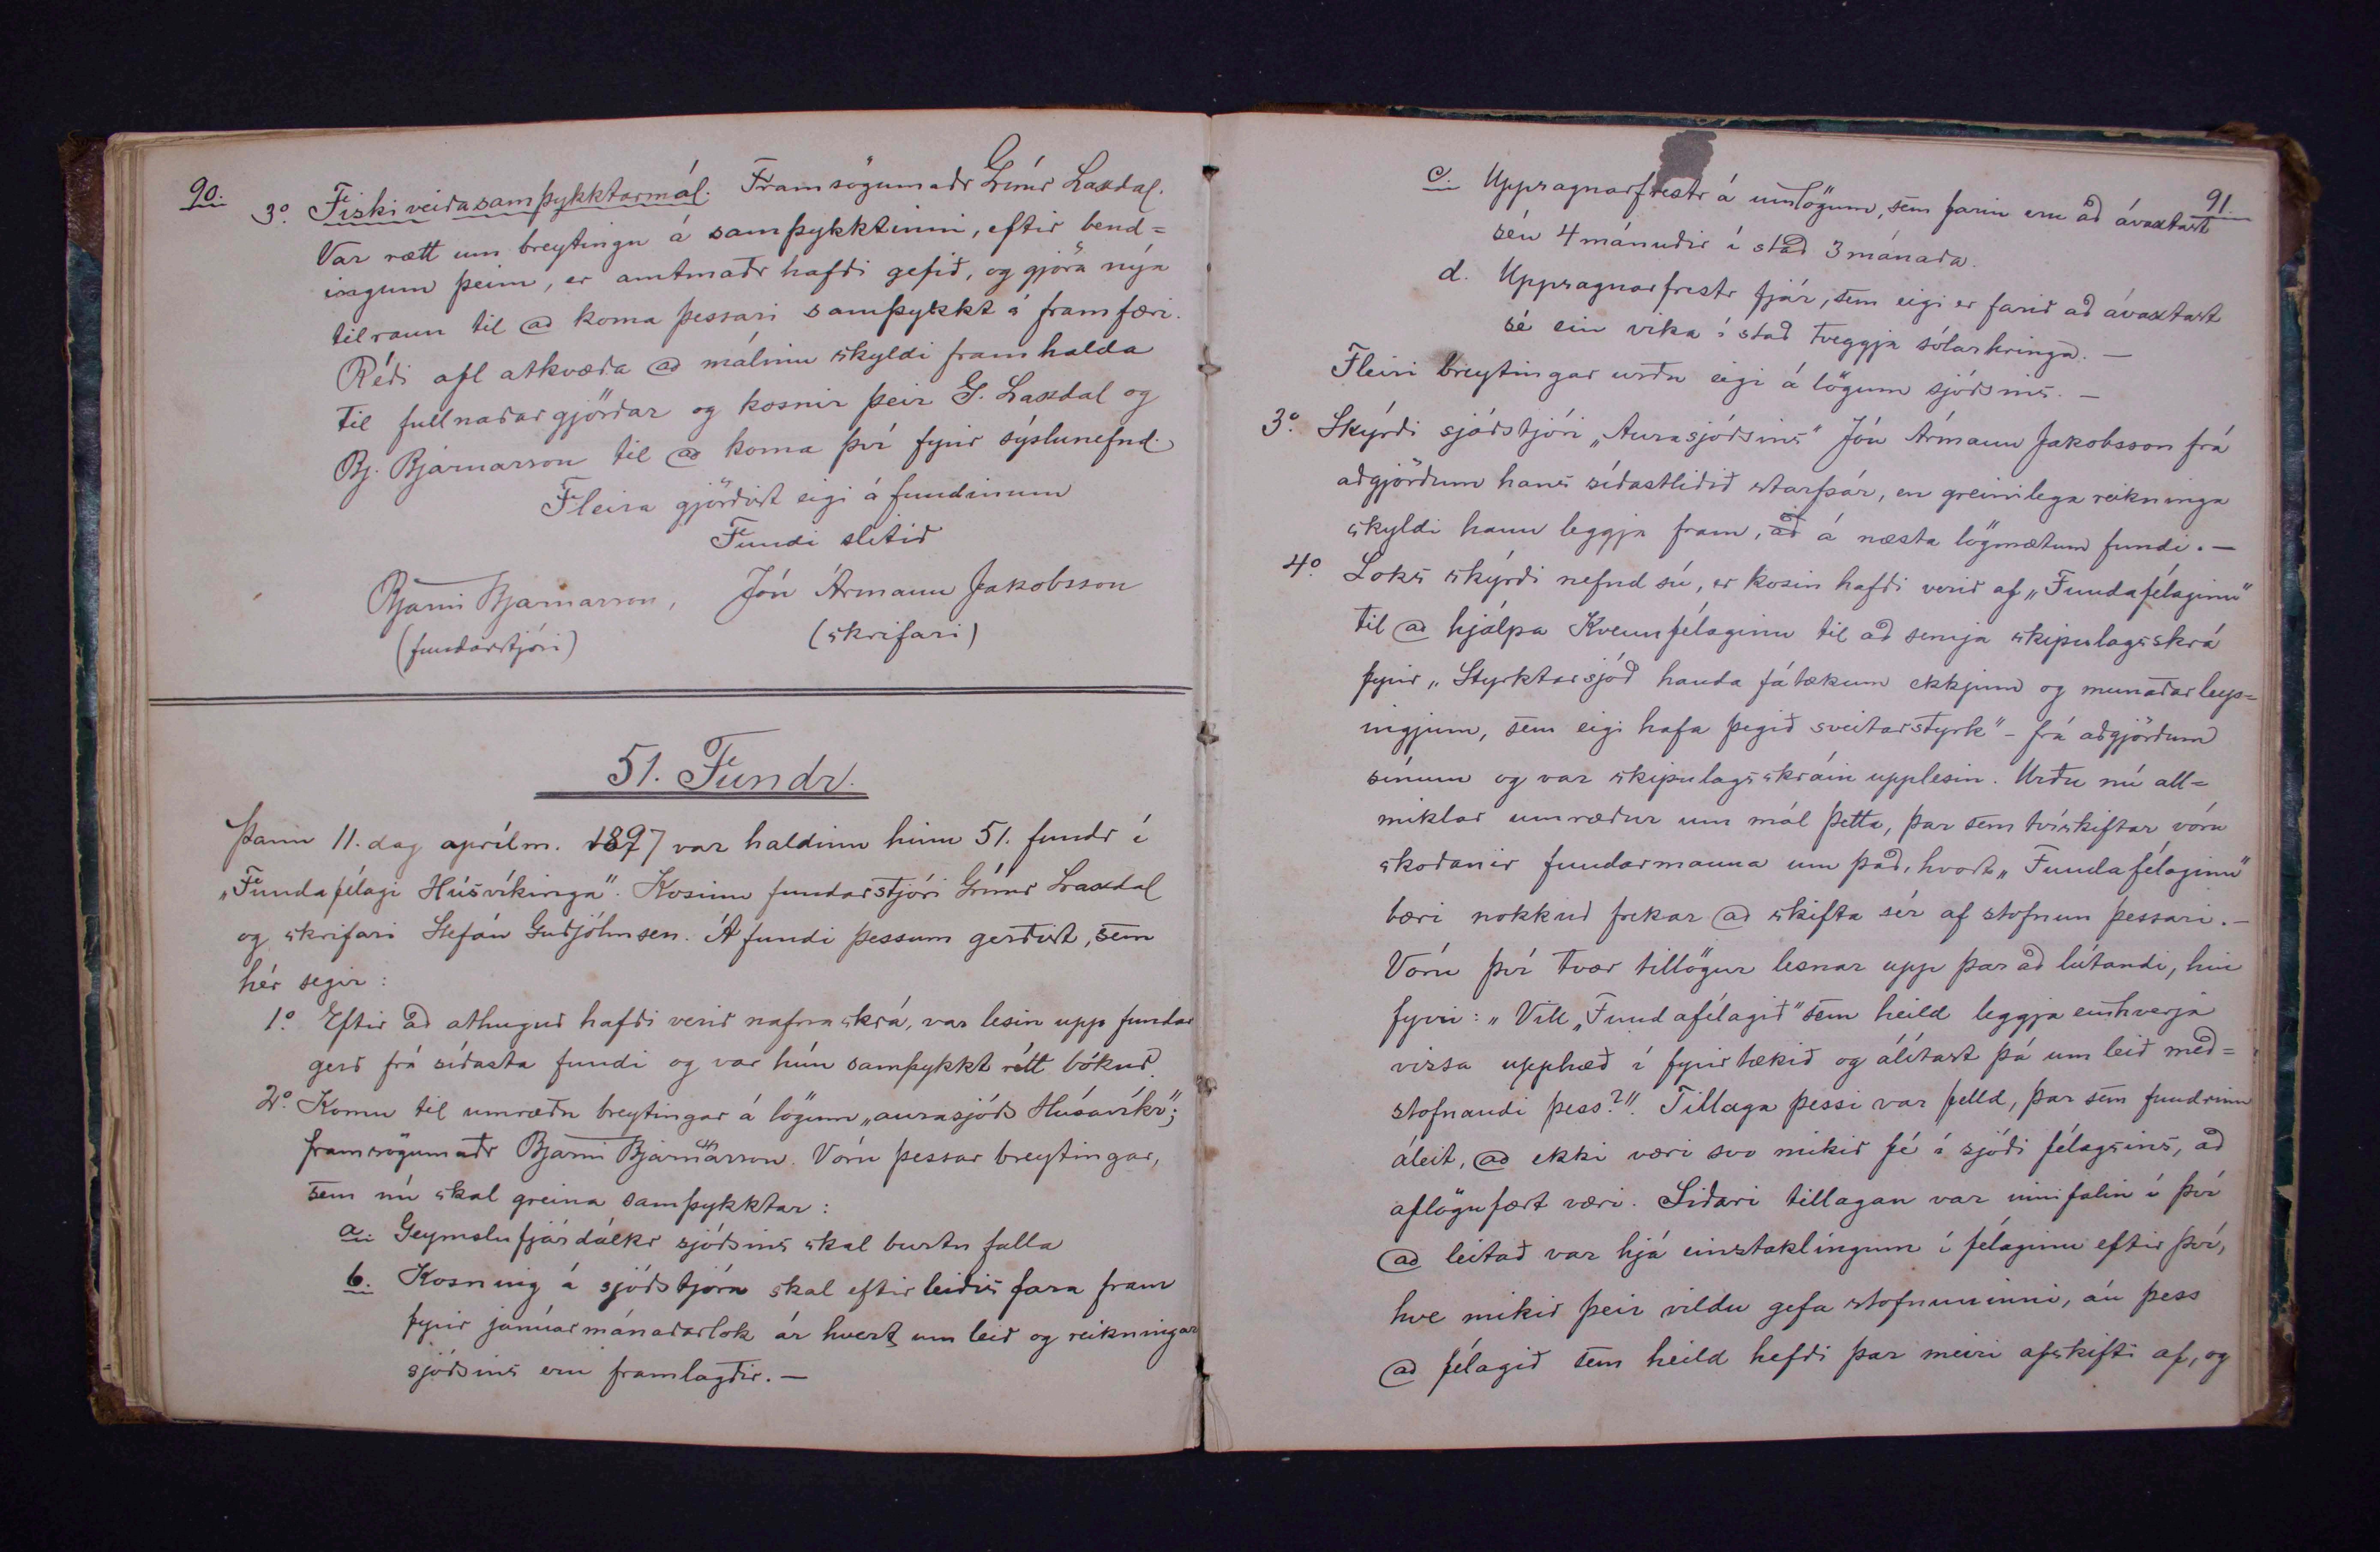 90.
3º. Fiskiveiðasamþykktarmál. Framsögumaðr Grímr Laxdal.
Var rætt um breytingu á samþykktinni, eftir bend=
ingum þeim, er amtmaðr hafði gefið, og gjöra nýa
tilraun til að koma þessari samþykkt á framfæri.
Réði afl atkvæða að málinu skyldi framhalda
til fullnaðargjörðar og kosnir þeir G. Laxdal og
Bj. Bjarnarson til að koma því fyrir sýslunefnd.
Fleira gjörðist eigi á fundinum
Fundi slitið
Bjarni Bjarnarson, Jón Ármann Jakobsson
(fundarstjóri) (skrifari)
51. Fundr.
Þann 11. dag aprílm. 1897 var haldinn hinn 51. fundr í
„Fundafélagi Húsvíkinga". Kosinn fundarstjóri Grímr Laxdal
og skrifari Stefán Guðjohnsen. Á fundi þessum gerðist, sem
hér segir:
1º. Eftir að athuguð hafði verið nafnaskrá, var lesin upp fundar
gerð frá síðasta fundi og var hún samþykkt rétt bókuð.
2º. Komu til umræðu breytingar á lögum „aurasjóðs Húsavíkr";
framsögumaðr Bjarni Bjarnarson. Vóru þessar breytingar,
sem nú skal greina samþykktar:
a. Geymslufjárdálkr sjóðsins skal burtu falla
b. Kosning á sjóðstjóra skal eftirleiðis fara fram
fyrir janúarmánaðarlok ár hvert um leið og reikningar
sjóðsins eru framlagðir. —
91.
c. Uppsagnarfrestr á innlögum, sem farin eru að ávaxtast
séu 4 mánuðir í stað 3 mánaða.
d. Uppsagnarfrestr fjár, sem eigi er farið að ávaxtast
sé ein vika í stað tveggja sólarhringa. —
Fleiri breytingar urðu eigi á lögum sjóðsins. —
3º. Skýrði sjóðstjóri „Aurasjóðsins" Jón Ármann Jakobsson frá
aðgjörðum hans síðastliðið starfsár, en greinilega reikninga
skyldi hann leggja fram, að á næsta lögmætum fundi. —
4º. Loks skýrði nefnd sú, er kosin hafði verið af „Fundafélaginu"
til að hjálpa Kvennfélaginu til að semja skipulagsskrá
fyrir „Styrktarsjóð handa fátækum ekkjum og munaðarleys=
ingjum, sem eigi hafa þegið sveitarstyrk" - frá aðgjörðum
sínum og var skipulagsskráin upplesin. Urðu nú all=
miklar umræður um mál þetta, þar sem tvískiftar vóru
skoðanir fundarmanna um það, hvort „Fundafélaginu"
bæri nokkuð frekar að skifta sér af stofnun þessari. —
Vóru því tvær tillögur lesnar upp þar að lútandi, hin
fyrri: „Vill „Fundafélagið" sem heild leggja einhverja
vissa upphæð í fyrirtækið og álítast þá um leið með=
stofnandi þess?". Tillaga þessi var felld, þar sem fundrinn
áleit, að ekki væri svo mikið fé í sjóði félagsins, að
aflögufært væri. Síðari tillagan var innifalin í því
að leitað var hjá einstaklingum í félaginu eftir því,
hve mikið þeir vildu gefa stofnuninni, án þess
að félagið sem heild hefði þar meiri afskifti af, og